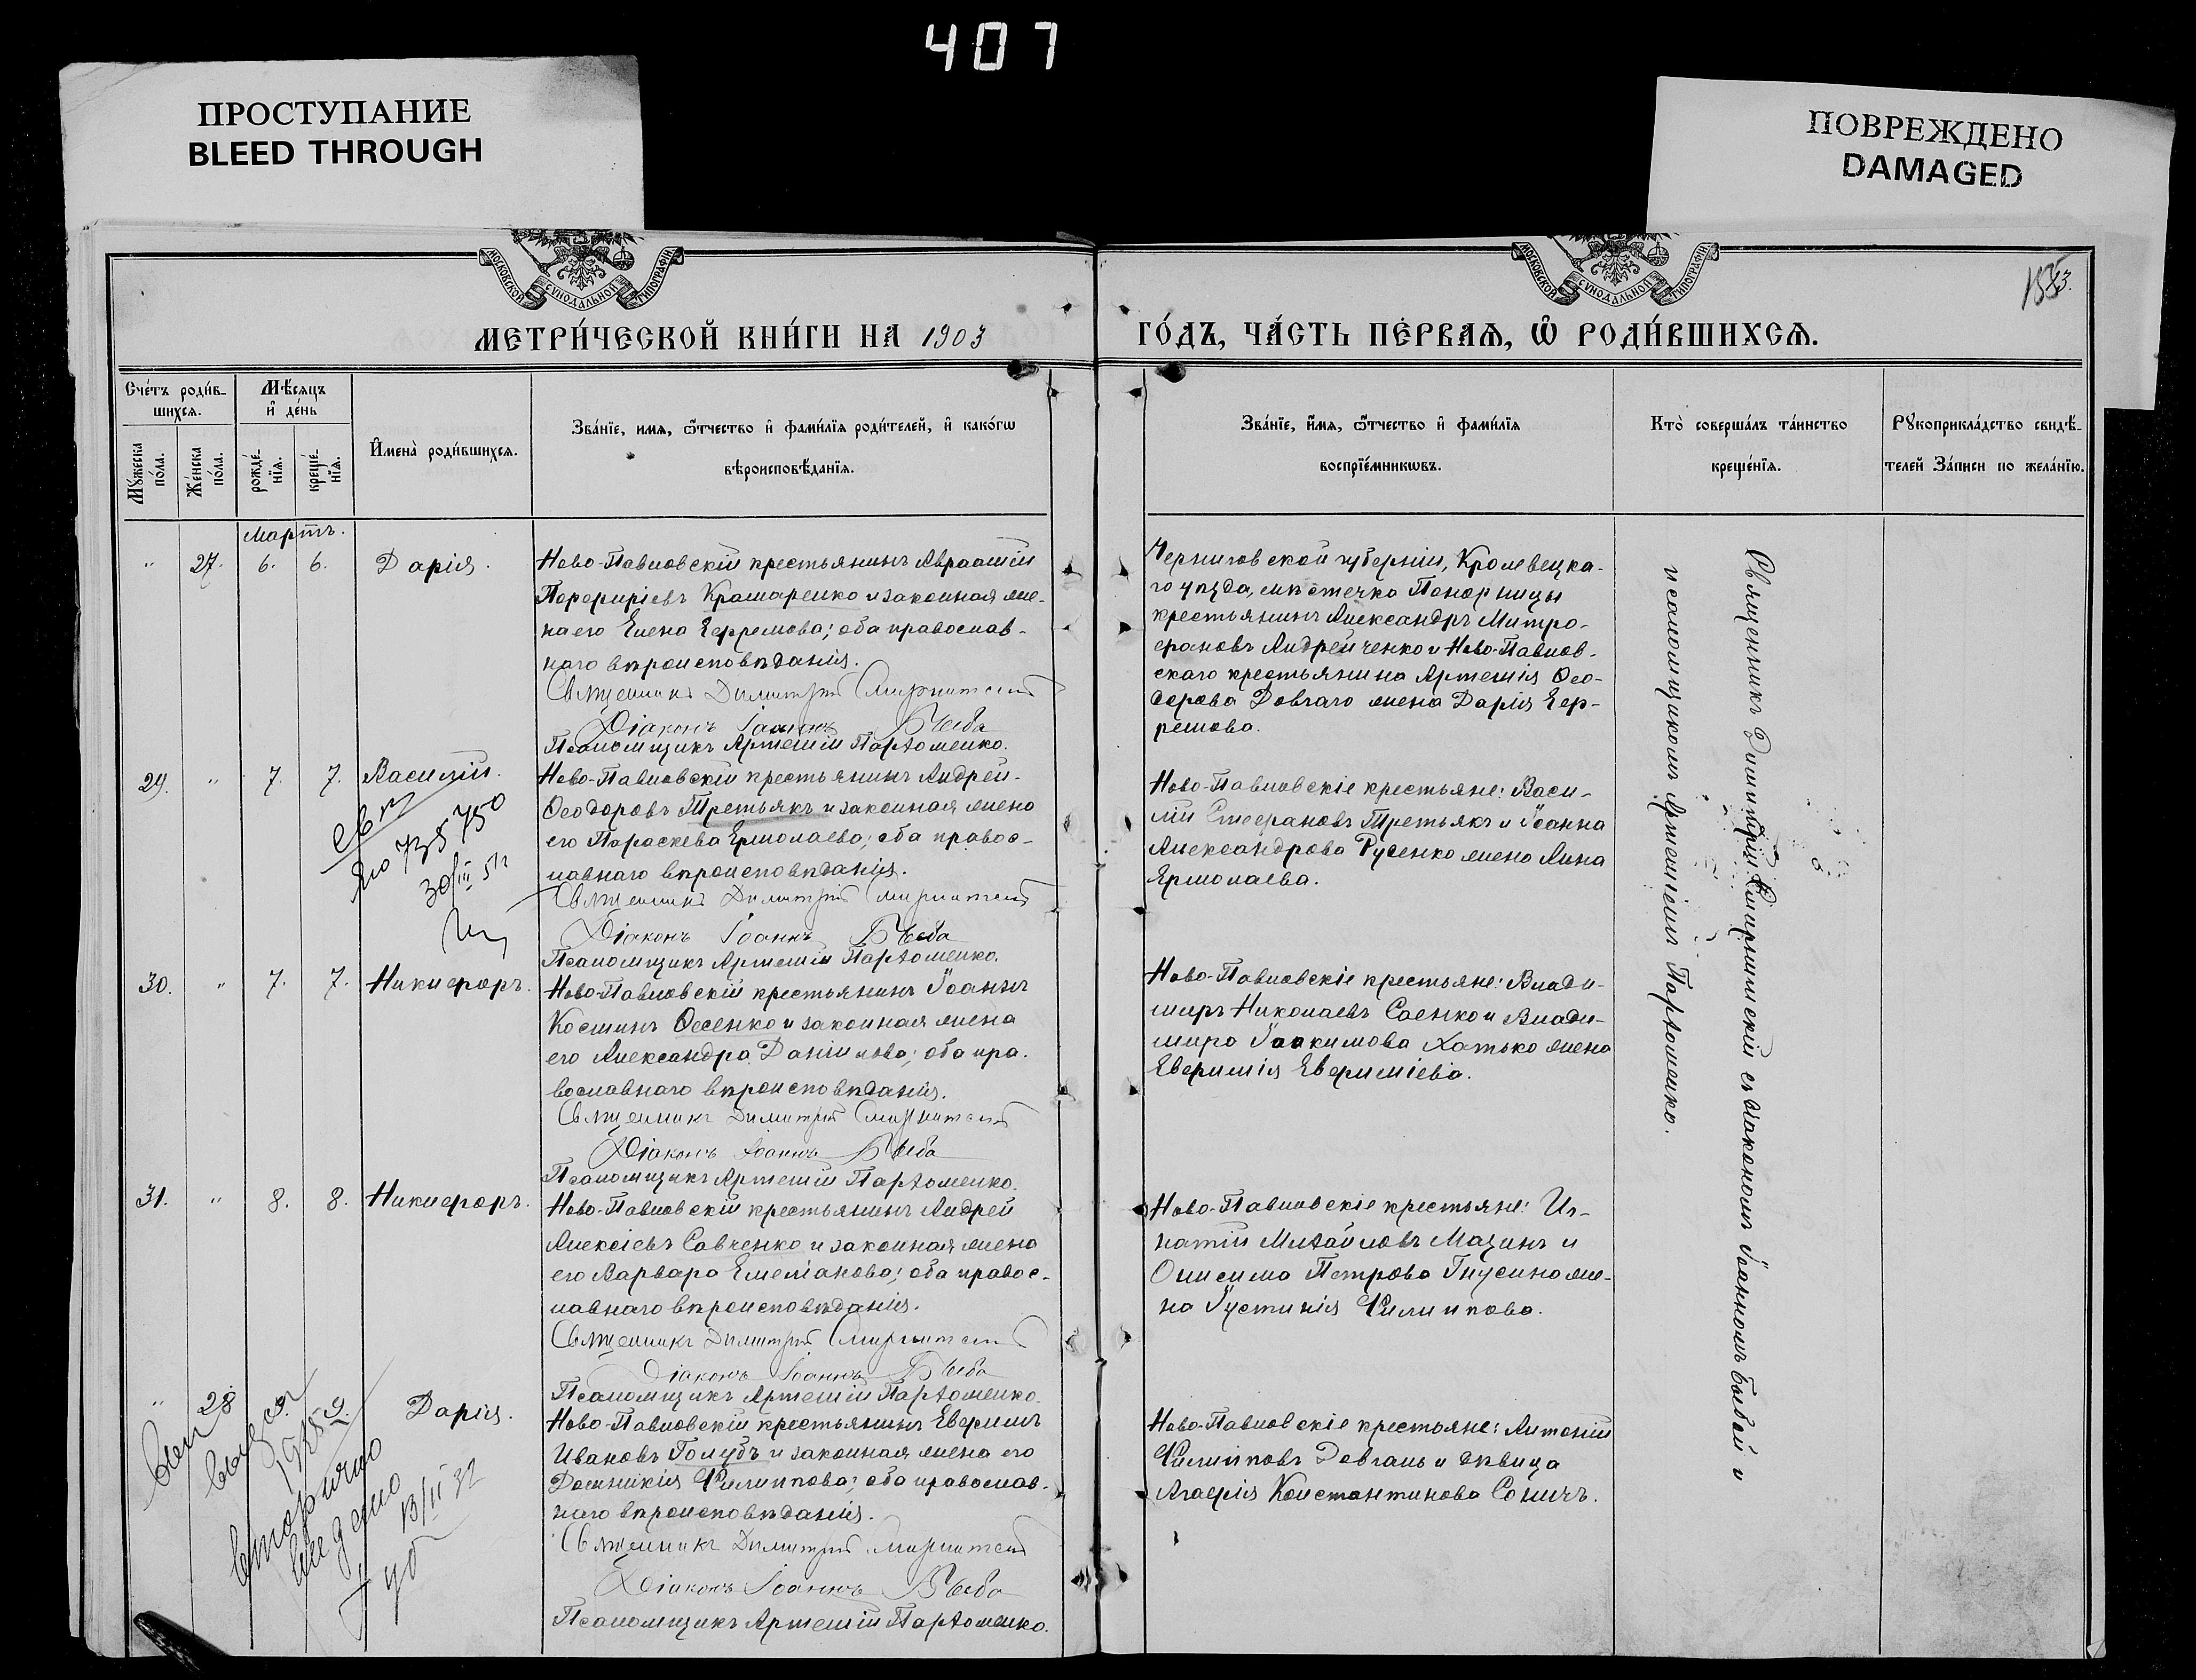 407
ПРОСТУПАНИЕ
BLEED THROUGH
ПОВРЕЖДЕНО
DAMAGED
МОСКОВСКОЙ СѴНОДАЛЬНОЙ ТИПОГРАФІИ
МОСКОВСКОЙ СѴНОДАЛЬНОЙ ТИПОГРАФІИ
МЕТРИ́ЧЕСКОЙ КНИ́ГИ НА 1903
ГО́ДЪ, ЧА́СТЬ ПЕ́РВАѦ, Ѽ РОДИ́ВШИХСѦ.
Сче́тъ роди́в-
шихсѧ.
Мꙋ́жеска
по́ла.
Же́нска
по́ла.
Мѣ́сѧцъ
и҆ де́нь
рожде́-
нїѧ.
креще́-
нїѧ.
И҆мена̀ роди́вшихсѧ.
Зва́нїе, имѧ, ѿтчество и҆ фами́лїѧ роди́телей, и҆ како́гѡ
вѣроисповѣ́данїѧ.
Зва́нїе, и҆́мѧ, ѿтчество и҆ фами́лїѧ
воспрїе́мникѡвъ.
Кто̀ соверша́лъ та́инство
креще́нїѧ.
Рꙋкоприкла́дство свидѣ́-
телей За́писи по жела́нїю.
Мартъ.
" 27. 6. 6. Дарія.
Ново-Павловскій крестьянинъ Авраамій
Порфиріевъ Крамаренко и законная же-
на его Елена Ефремова; оба православ-
наго вѣроисповѣданія.
Священникъ Димитрій
Діаконъ Іоаннъ Бъеба
Псаломщикъ Артемій Пархоменко.
Черниговской губерніи, Кролевецка-
го уѣзда, мѣстечка Понорницы
крестьянинъ Александръ Митро-
фановъ Андрейченко и Ново-Павлов-
скаго крестьянина Артемія Ѳео-
дорова Довгаго жена Дарія Еф-
ремова.
29. " 7. 7. Василій.
30/III
Ново-Павловскій крестьянинъ Андрей
Ѳеодоровъ Третьякъ и законная жена
его Параскева Ермолаева; оба правос-
лавнаго вѣроисповѣданія.
Священникъ Димитрій
Діаконъ Іоаннъ Бъеба
Псаломщикъ Артемій Пархоменко.
Ново-Павловскіе крестьяне: Васи-
лій Стефановъ Третьякъ и Іоанна
Александрова Русенко жена Анна
Ермолаева.
30. " 7. 7. Никифоръ.
Ново-Павловскій крестьянинъ Іоаннъ
Косминъ Фесенко и законная жена
его Александра Даніилова; оба пра-
вославнаго вѣроисповѣданія.
Священникъ Димитрій
Діаконъ Іоаннъ Бъеба
Псаломщикъ Артемій Пархоменко.
Ново-Павловскіе крестьяне: Влади-
миръ Николаевъ Саенко и Влади-
мира Іоакимова Хатько жена
Евфимія Евфиміева.
31. " 8. 8. Никифоръ.
Ново-Павловскій крестьянинъ Андрей
Алексіевъ Савченко и законная жена
его Варвара Емеліанова; оба правос-
лавнаго вѣроисповѣданія.
Священникъ Димитрій
Діаконъ Іоаннъ Бъеба
Псаломщикъ Артемій Пархоменко.
Ново-Павловскіе крестьяне: Иг-
натій Михайловъ Мазинъ и
Онисима Петрова Гнусина же-
на Іустинія Филиппова.
" 28 9. 9. Дарія.
вторично
13/II 32
Ново-Павловскій крестьянинъ Евфимъ
Ивановъ Голубъ и законная жена его
Домникія Филиппова; оба православ-
наго вѣроисповѣданія.
Священникъ Димитрій
Діаконъ Іоаннъ Бъеба
Псаломщикъ Артемій Пархоменко.
Ново-Павловскіе крестьяне: Антоній
Филипповъ Довгань и дѣвица
Агафія Константинова Соничъ.
Священникъ Димитрій Смирнитскій съ діакономъ Іоанномъ Бъебой и
псаломщикомъ Артеміемъ Пархоменко.